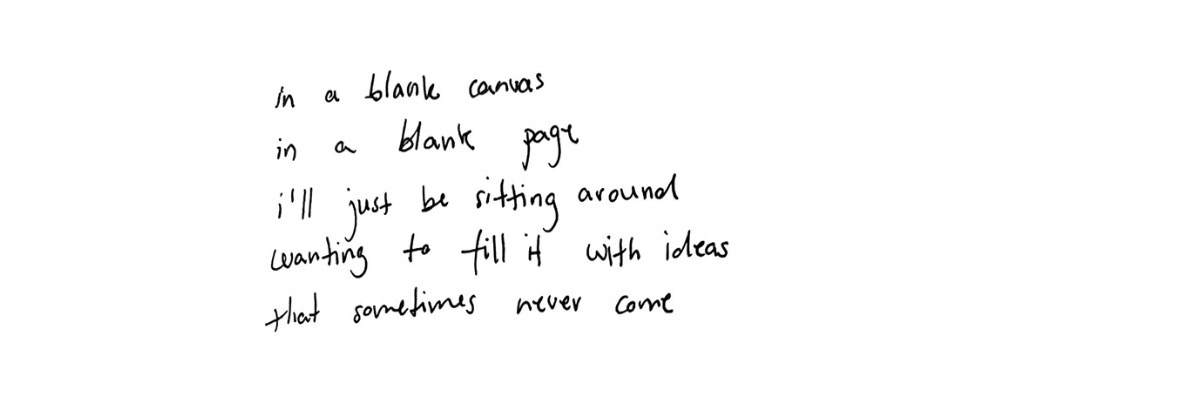 in a blank canvas
in a blank page
i'll just be sitting around
wanting to fill it with ideas
that sometimes never come